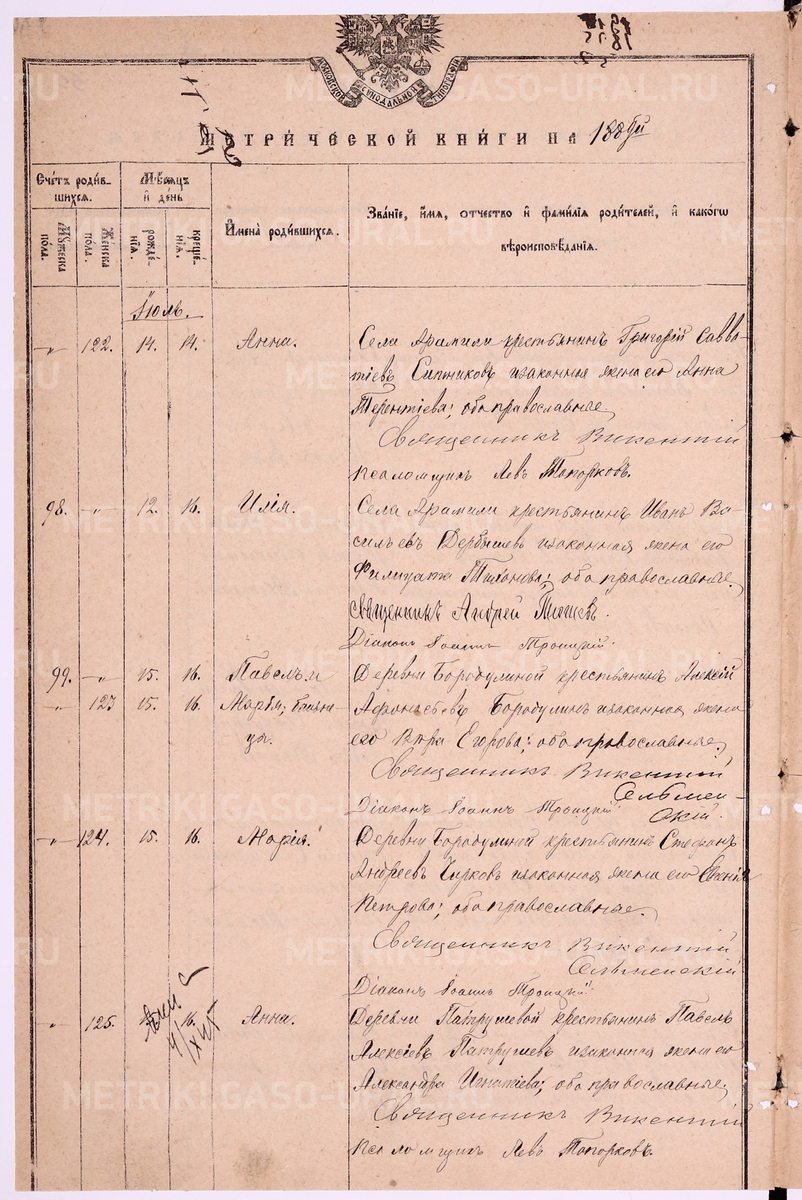 МОСКОВСКОЙ СѴНОДАЛЬНОЙ ТИПОГРАФІИ
МЕТРИЧЕСКОЙ КНИГИ НА 188
Счетъ родившихся.
Мѣсяцъ и день
Имена родившихся.
Званіе, имя, отчество и фамилія родителей, и какогω вѣроисповѣданія.
Мужеска пола.
Женска пола.
рожденія.
крещенія.
Іюль.
„ 122. 14. 14. Анна. Села Арамили крестьянинъ Григорій Савва-
тіевъ Ситниковъ изаконная жена его Анна
Терентіева; оба православные,
Священникъ Викентій
Псаломщикъ Левъ Топорковъ.
98. „ 12. 16. Илія. Села Арамили крестьянинъ Иванъ Ва-
сильевъ Дербышевъ изаконная жена его
Филицата Тихонова; оба православные,
Священникъ Андрей
Діаконъ Іоаннъ Троицкій.
99. „ 15. 16. Павелъ и Деревни Бородулиной крестьянинъ Алексій
„ 123 15. 16. Марія; близне- Афонасьевъ Бородулинъ изаконная жена
цы. его Вѣра Егорова; оба православные,
Священникъ Викентій
Сельмен-
скій.
Діаконъ Іоаннъ Троицкій
„ 124. 15. 16. Марія. Деревни Бородулиной крестьянинъ Стефанъ
Андреевъ Чирковъ изаконная жена его Евгенія
Петрова; оба православные,
Священникъ Викентій
Сельменскій
Діаконъ Іоаннъ Троицкій.
„ 125. 16. Анна. Деревни Патрушевой крестьянинъ Павелъ
Алексіевъ Патрушевъ изаконная жена его
Александра Игнатіева; оба православные,
Священникъ Викентій
Псаломщикъ Левъ Топорковъ.
METRIKI.GASO-URAL.RU